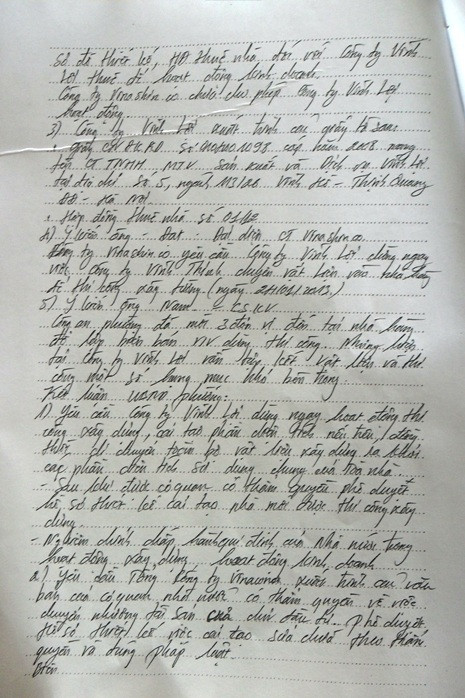 Sơ đồ thiết kế, HĐ thuê nhà đối với Công ty Vĩnh
Lợi thuê để hoạt động kinh doanh.
Công ty Vinashin có cho phép Công ty Vĩnh Lợi
hoạt động.
3) Công ty Vĩnh Lợi xuất trình các giấy tờ sau:
cấp năm 2008 mang
tên CT TNHH MTV Sản xuất và Dịch vụ Vĩnh Lợi
tại địa chỉ Số 5, ngách Vĩnh Hồ - Thịnh Quang
ĐĐ - Hà Nội
+ Hợp đồng thuê nhà số
4) Ý kiến ông - Đạt - Đại diện CT Vinashin
Công ty Vinashin có yêu cầu Công ty Vĩnh Lợi dừng ngay
việc Công ty Vĩnh Thành chuyển vật liệu vào nhà hàng
để thi công xây tường (ngày 24/01/2013.)
5) Ý kiến ông Nam -
Công an phường đã mời 3 đơn vị đến tại nhà hàng
để lập biên bản dừng thi công. Nhưng hiện
tại Công ty Vĩnh Lợi vẫn tập kết vật liệu và thi
công một số hạng mục nhỏ bên trong
Kết luận UBND phường:
1) Yêu cầu Công ty Vĩnh Lợi dừng ngay hoạt động thi
công xây dựng, cải tạo phần diện tích nêu trên, đồng
thời di chuyển toàn bộ vật liệu xây dựng ra khỏi
các phần diện tích sử dụng chung của tòa nhà.
- Sau khi được cơ quan có thẩm quyền phê duyệt
hồ sơ thiết kế cải tạo nhà mới được thi công xây
dựng.
- Nghiêm chỉnh chấp hành quy định của nhà nước trong
hoạt động xây dựng, hoạt động kinh doanh
2) Yêu cầu Tổng Công ty xuất trình các văn
bản của cơ quan nhà nước có thẩm quyền về việc
chuyển nhượng tài sản của chủ đầu tư. Phê duyệt
hồ sơ thiết kế việc cải tạo sửa chữa theo thẩm
quyền và đúng pháp luật.